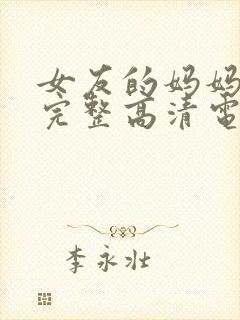 女友的妈妈
完整高清电
李永壮